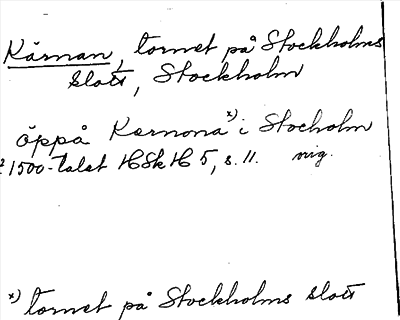 Kärnan, tornet på Stockholms
Slott, Stockholm
öppå Kernona x) i Stocholm
1500-talet HSkH 5, s. 11. orig.
x) tornet på Stockholms slott